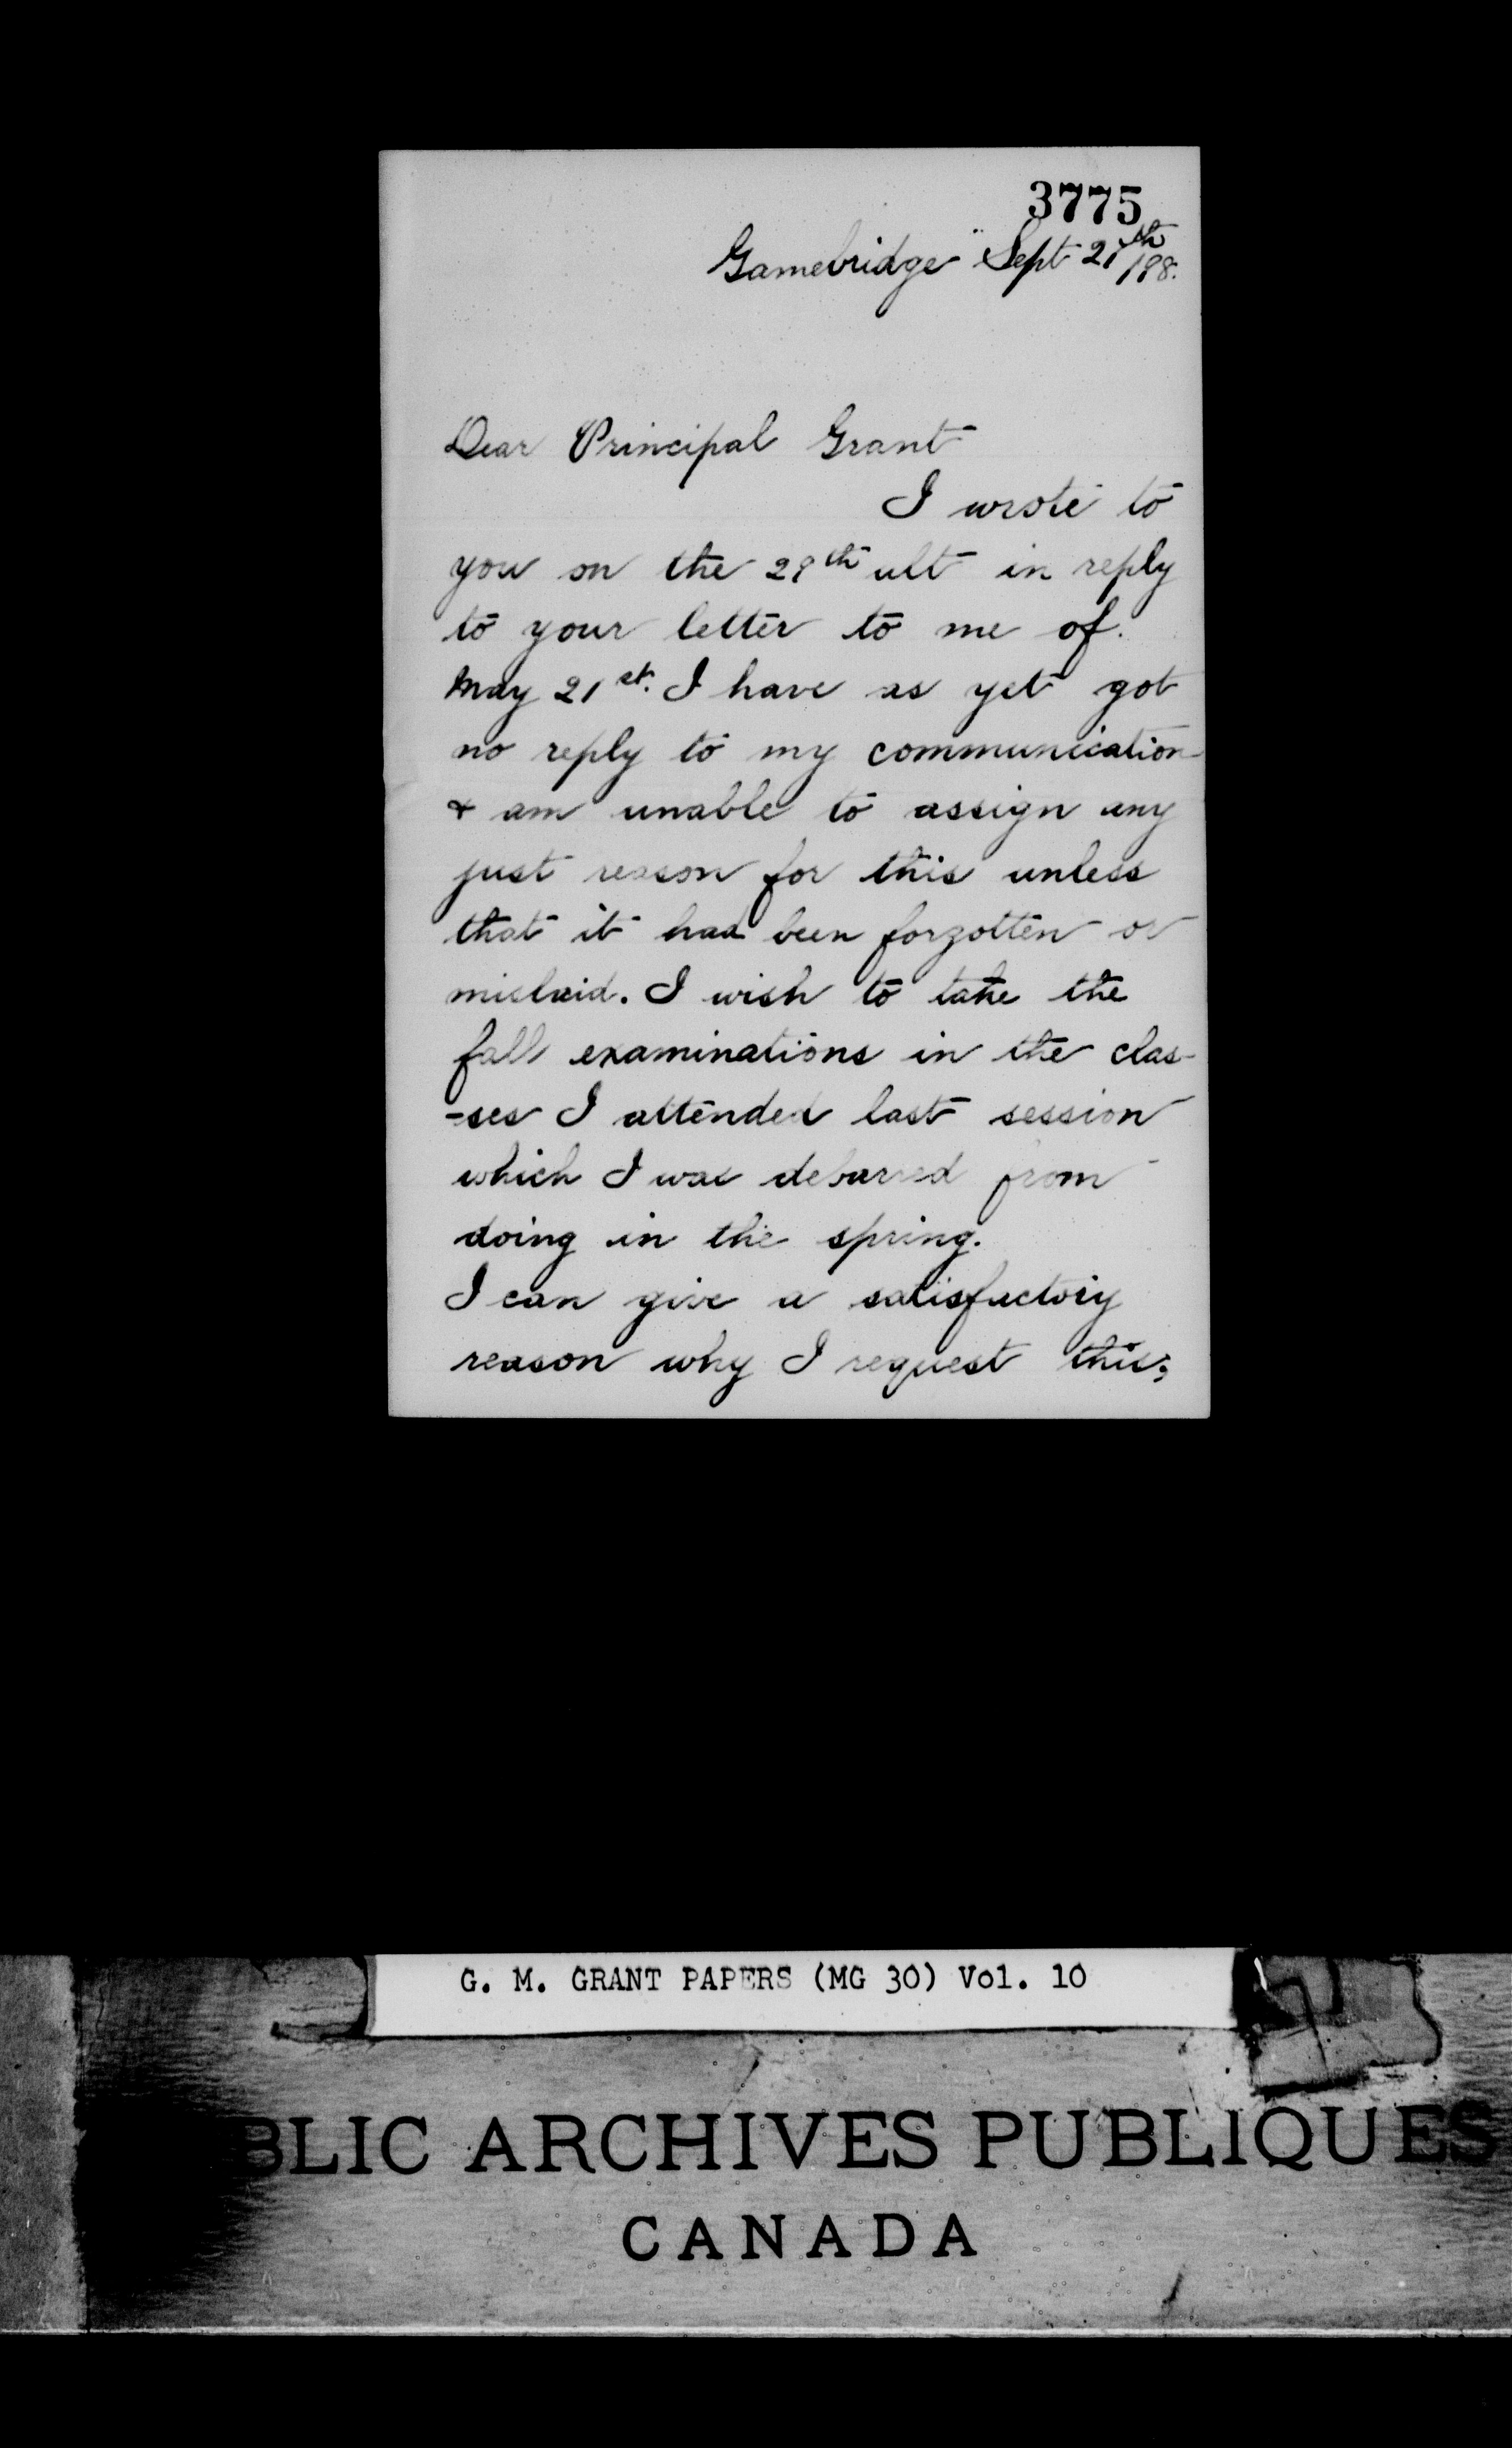 3775
Gamebridge Sept 27th /98.
Dear Principal Grant
I wrote to
you on the 29th ult in reply
to your letter to me of.
May 21st. I have as yet got
no reply to my communication
& am unable to assign any
just reason for this unless
that it had been forgotten or
mislaid. I wish to take the
fall examinations in the clas-
-ses I attended last session
which I was debarred from
doing in the spring.
I can give a satisfactory
reason why I request this;
G. M. GRANT PAPERS (MG 30) Vol. 10
BLIC ARCHIVES PUBLIQUES
CANADA